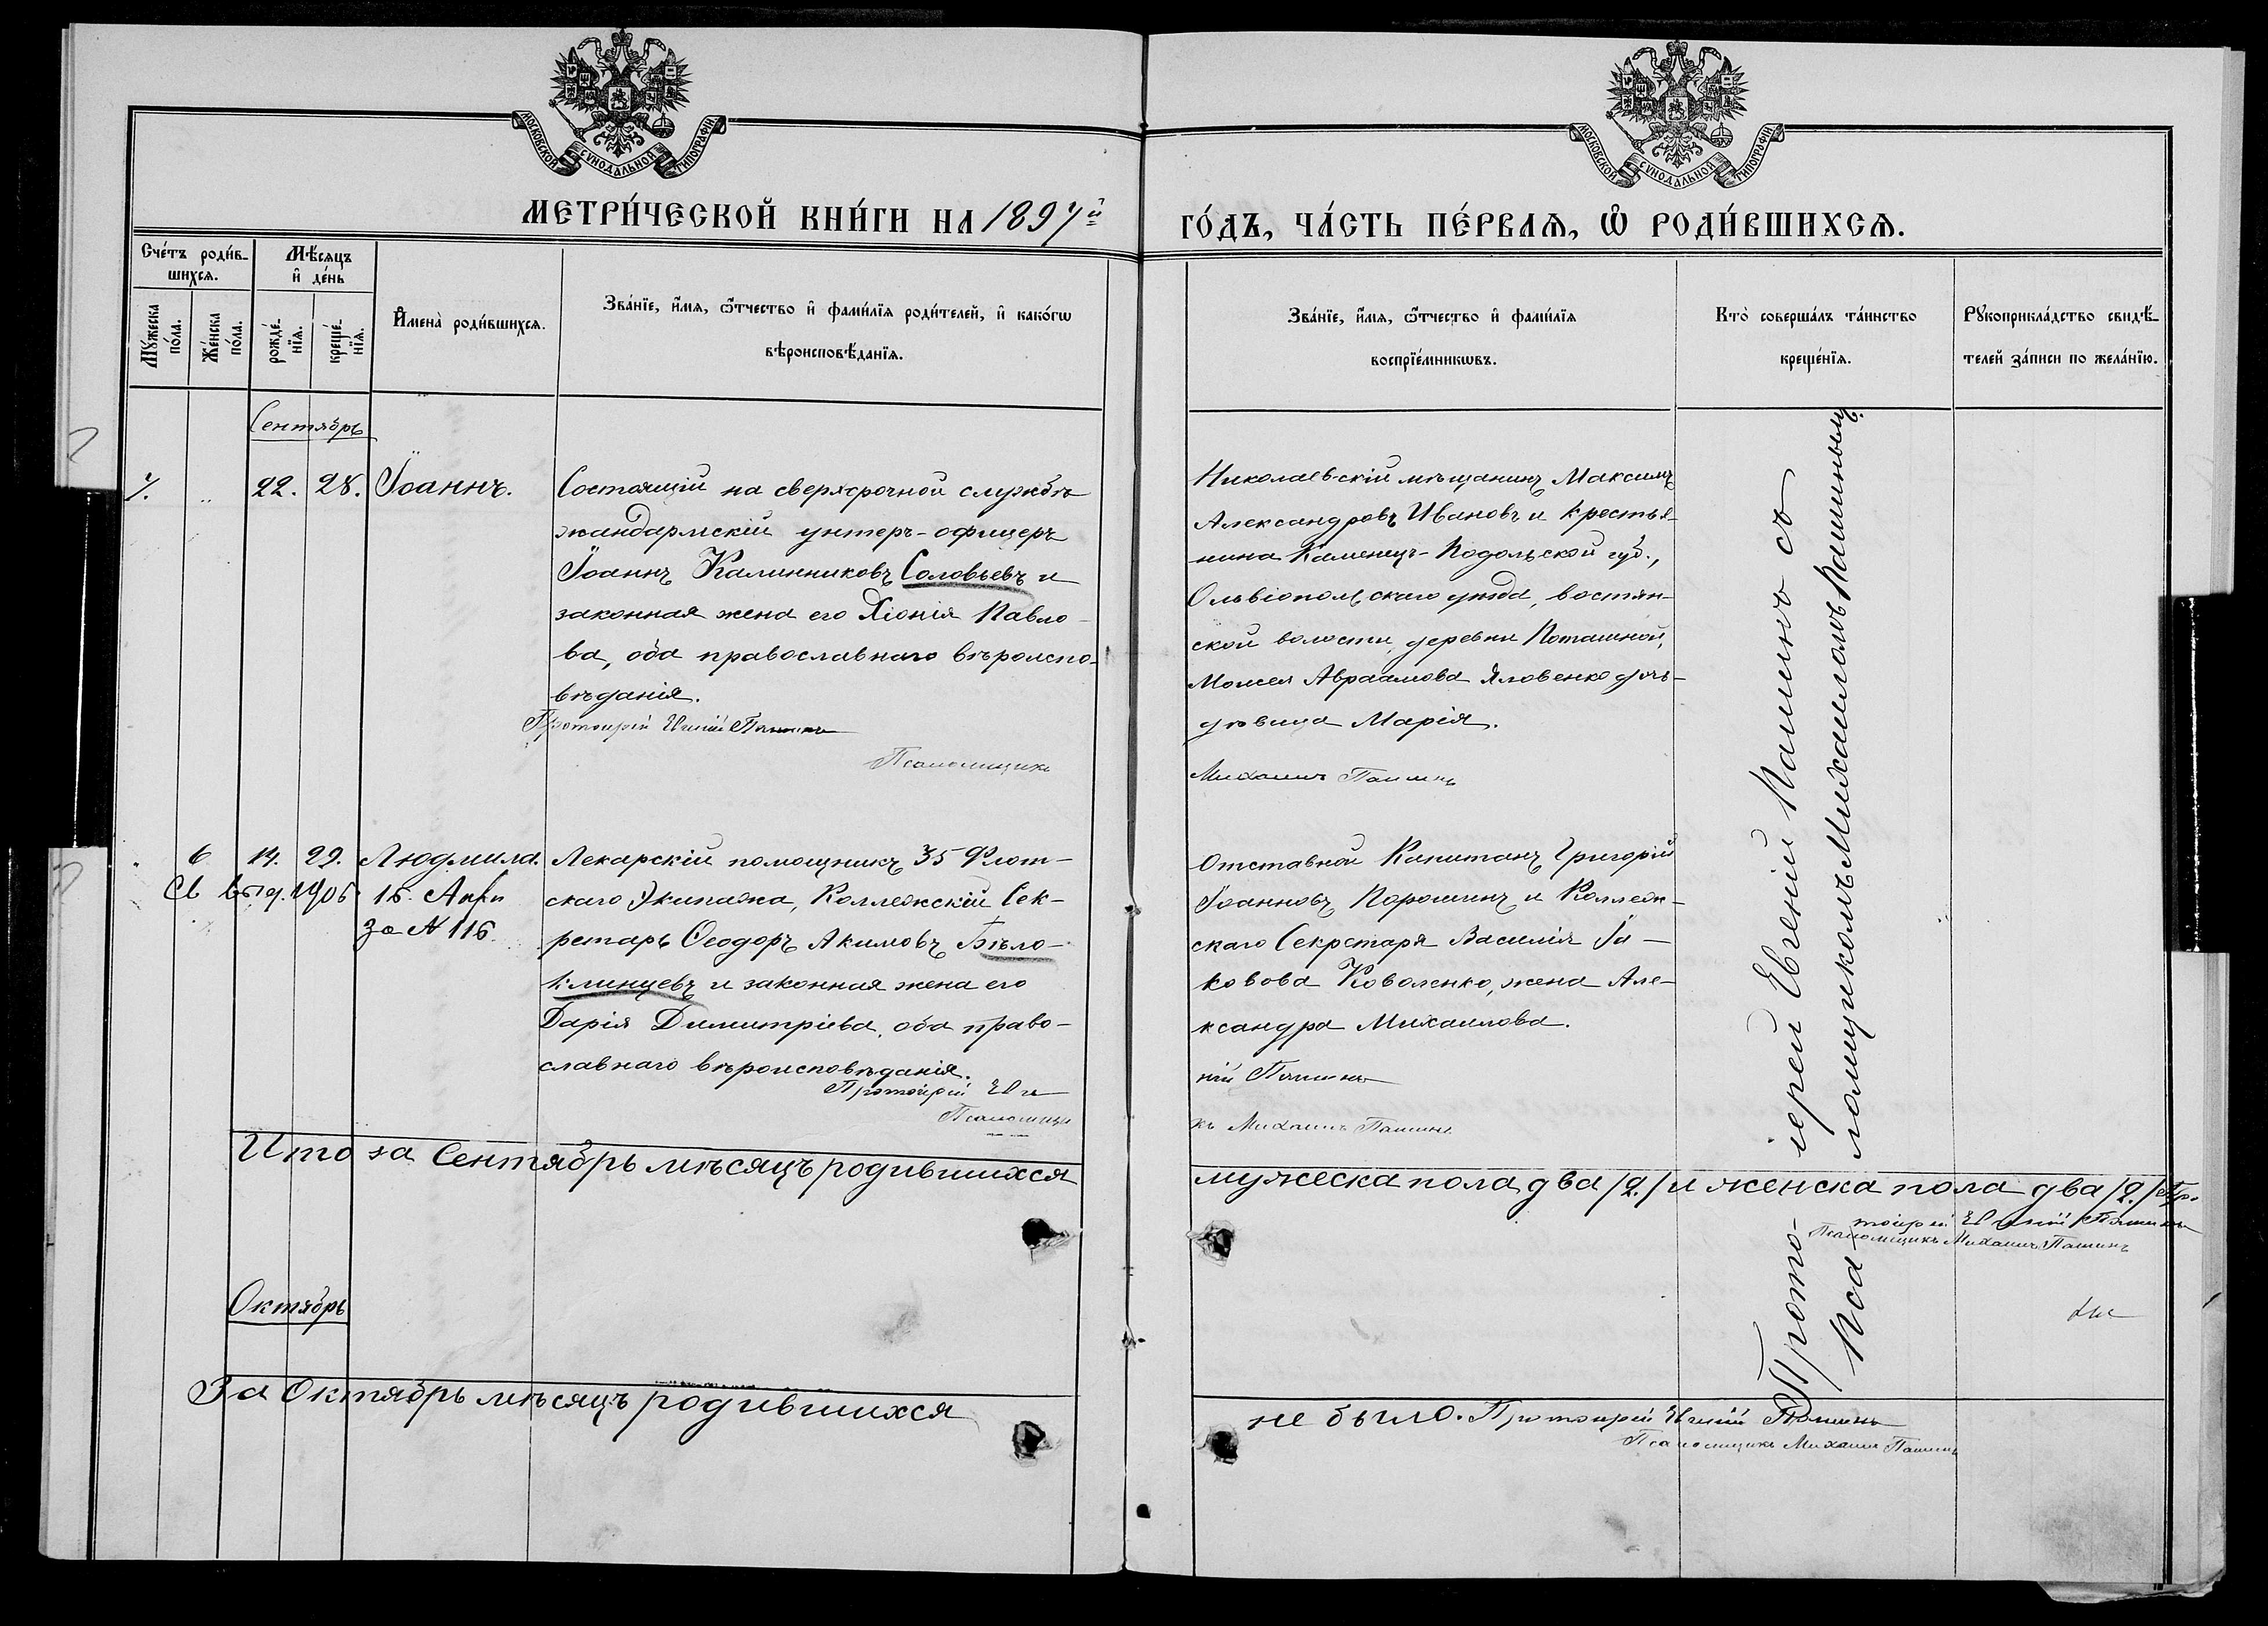 МОСКОВСКОЙ СѴНОДАЛЬНОЙ ТИПОГРАФІИ
МОСКОВСКОЙ СѴНОДАЛЬНОЙ ТИПОГРАФІИ
МЕТРИ́ЧЕСКОЙ КНИ́ГИ НА 1897й
ГО́ДЪ, ЧА́СТЬ ПЕ́РВАѦ, Ѽ РОДИ́ВШИХСѦ.
Сче́тъ роди́в-
шихсѧ.
Мѣ́сѧцъ
и҆ де́нь
Мꙋ́жеска
по́ла.
Же́нска
по́ла.
рожде́-
нїѧ.
креще́-
нїѧ.
И҆мена̀ роди́вшихсѧ.
Зва́нїе, и҆́мѧ, ѻ҆́тчество и҆ фами́лїѧ роди́телей, и҆ како́гѡ
вѣроисповѣ́данїѧ.
Зва́нїе, и҆́мѧ, ѻ҆́тчество и҆ фами́лїѧ
воспрїе́мникѡвъ.
Кто̀ соверша́лъ та́инство
креще́нїѧ.
Рꙋкоприкла́дство свидѣ́-
телей за́писи по жела́нїю.
Сентябрь
7. „ 22. 28. Іоаннъ.
Состоящій на сверхсрочной службѣ
жандармскій унтеръ-офицеръ
Іоаннъ Калинниковъ Соловьевъ и
законная жена его Хіонія Павло-
ва, оба православнаго вѣроиспо-
вѣданія.
Протоіерей Евгеній Пашинъ
Псаломщикъ
Николаевскій мѣщанинъ Максимъ
Александровъ Ивановъ и крестья-
нина Каменецъ-Подольской губ.,
Ольвіопольскаго уѣзда, востян-
ской волости, деревни Поташной,
Моисея Авраамова Яловенко дочь-
дѣвица Марія.
Михаилъ Пашинъ
„ 6 14. 29. Людмила.
Св выд. 1906 15 Апр
за № 116
Лекарскій помощникъ 35 Флот-
скаго Экипажа, Коллежскій Сек-
ретарь Ѳеодоръ Акимовъ Бѣло-
клинцевъ и законная жена его
Дарія Димитріева, оба право-
славнаго вѣроисповѣданія.
Протоіерей Евге
Псаломщи
Отставной Капитанъ Григорій
Іоанновъ Порошинъ и Коллеж-
скаго Секретаря Василія Іа-
ковова Коваленко, жена Але-
ксандра Михаилова.
ній Пашинъ
къ Михаилъ Пашинъ
Прото-іерей Евгеній Пашинъ съ
Псаломщикомъ Михаиломъ Пашинымъ.
Итого за Сентябрь мѣсяцъ родившихся
мужеска пола два /2./ и женска пола два /2./ Про-
тоіерей Евгеній Пашинъ
Псаломщикъ Михаилъ Пашинъ
Октябрь
За Октябрь мѣсяцъ родившихся
не было. Протоіерей Евгеній Пашинъ
Псаломщикъ Михаилъ Пашинъ